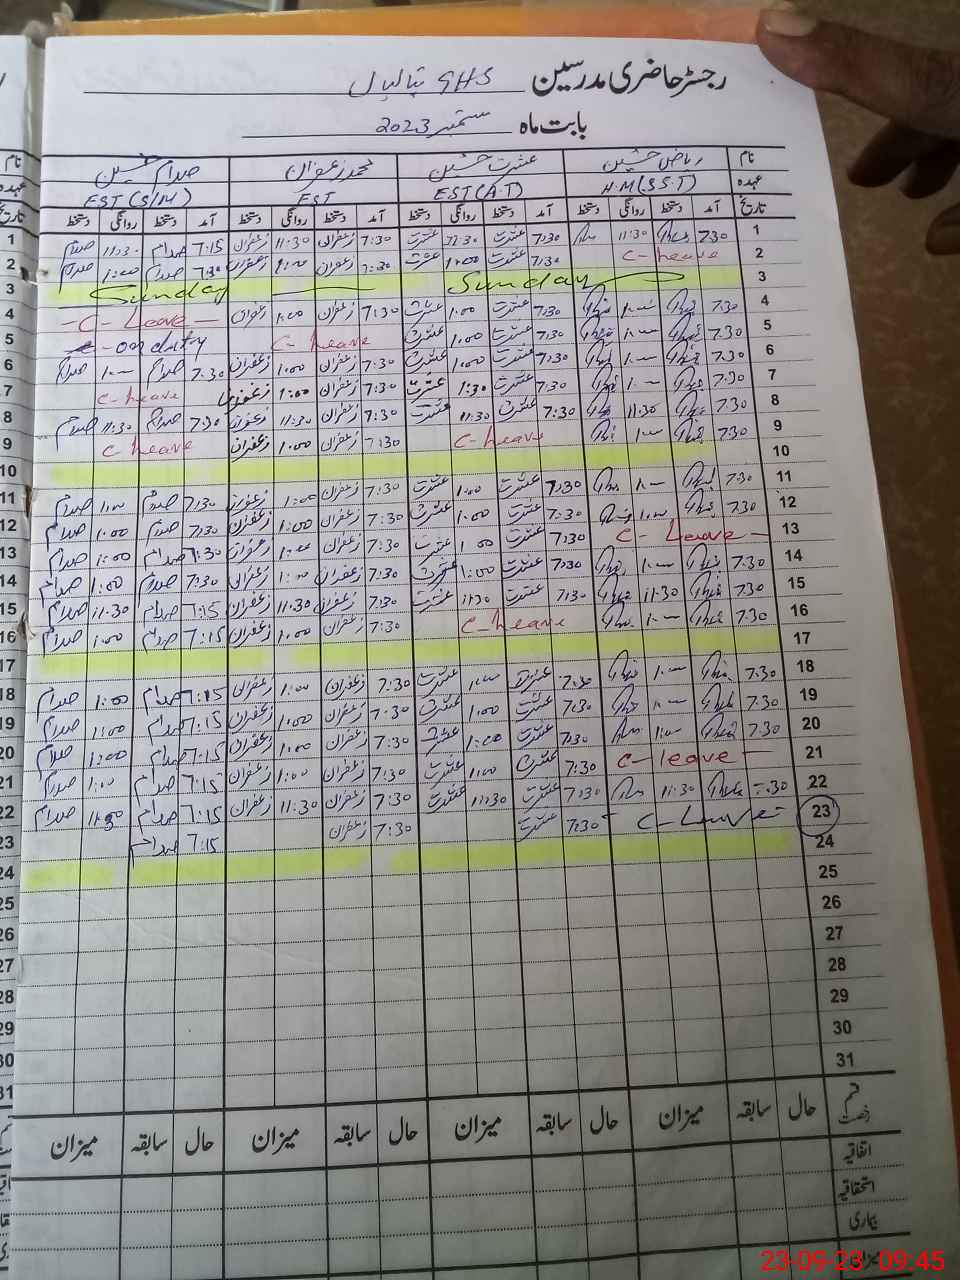 رجسٹر حاضری مدرسین GHS
بابت ماہ ستمبر 2023
نام ریاض حسین عشرت حسین محمد زعفران صدام حسین
عہدہ H.M(S.S.T) EST(A.T) EST EST(S/M)
تاریخ آمد دستخط روانگی دستخط آمد دستخط روانگی دستخط آمد دستخط روانگی دستخط آمد دستخط روانگی دستخط
1 7:30 11:30 7:30 عشرت 11:30 عشرت 7:30 زعفران 11:30 زعفران 7:15 صدام 11:30 صدام
2 C-heave 7:30 عشرت 1:00 عشرت 7:30 زعفران 1:00 زعفران 7:30 صدام 1:00 صدام
3 Sunday Sunday
4 7:30 1:00 7:30 عشرت 1:00 عشرت 7:30 زعفران 1:00 زعفران C-Leave
5 7:30 1:00 7:30 عشرت 1:00 عشرت C-heave on duty
6 7:30 1:00 7:30 عشرت 1:00 عشرت 7:30 زعفران 1:00 زعفران 7:30 صدام 1:00 صدام
7 7:30 1:00 7:30 عشرت 1:30 عشرت 7:30 زعفران 1:00 زعفران C-heave
8 7:30 11:30 7:30 عشرت 11:30 عشرت 7:30 زعفران 11:30 زعفران 7:30 صدام 11:30 صدام
9 7:30 1:00 C-heave 7:30 زعفران 1:00 زعفران C-heave
10
11 7:30 1:00 7:30 عشرت 1:00 عشرت 7:30 زعفران 1:00 زعفران 7:30 صدام 1:00 صدام
12 7:30 1:00 7:30 عشرت 1:00 عشرت 7:30 زعفران 1:00 زعفران 7:30 صدام 1:00 صدام
13 C-Leave 7:30 عشرت 1:00 عشرت 7:30 زعفران 1:00 زعفران 7:30 صدام 1:00 صدام
14 7:30 1:00 7:30 عشرت 1:00 عشرت 7:30 زعفران 1:00 زعفران 7:30 صدام 1:00 صدام
15 7:30 11:30 7:30 عشرت 11:30 عشرت 7:30 زعفران 11:30 زعفران 7:15 صدام 11:30 صدام
16 7:30 1:00 C-heave 7:30 زعفران 1:00 زعفران 7:15 صدام 1:00 صدام
17
18 7:30 1:00 7:30 عشرت 1:00 عشرت 7:30 زعفران 1:00 زعفران 7:15 صدام 1:00 صدام
19 7:30 1:00 7:30 عشرت 1:00 عشرت 7:30 زعفران 1:00 زعفران 7:15 صدام 1:00 صدام
20 7:30 1:00 7:30 عشرت 1:00 عشرت 7:30 زعفران 1:00 زعفران 7:15 صدام 1:00 صدام
21 C-leave 7:30 عشرت 1:00 عشرت 7:30 زعفران 1:00 زعفران 7:15 صدام 1:00 صدام
22 7:30 11:30 7:30 عشرت 11:30 عشرت 7:30 زعفران 11:30 زعفران 7:15 صدام 11:30 صدام
23 C-Leave 7:30 عشرت 7:30 زعفران 7:15 صدام
24
25
26
27
28
29
30
31
قسم رخصت حال سابقہ میزان حال سابقہ میزان حال سابقہ میزان حال سابقہ میزان
اتفاقیہ
استحقاقیہ
بیماری
23-09-23 09:45